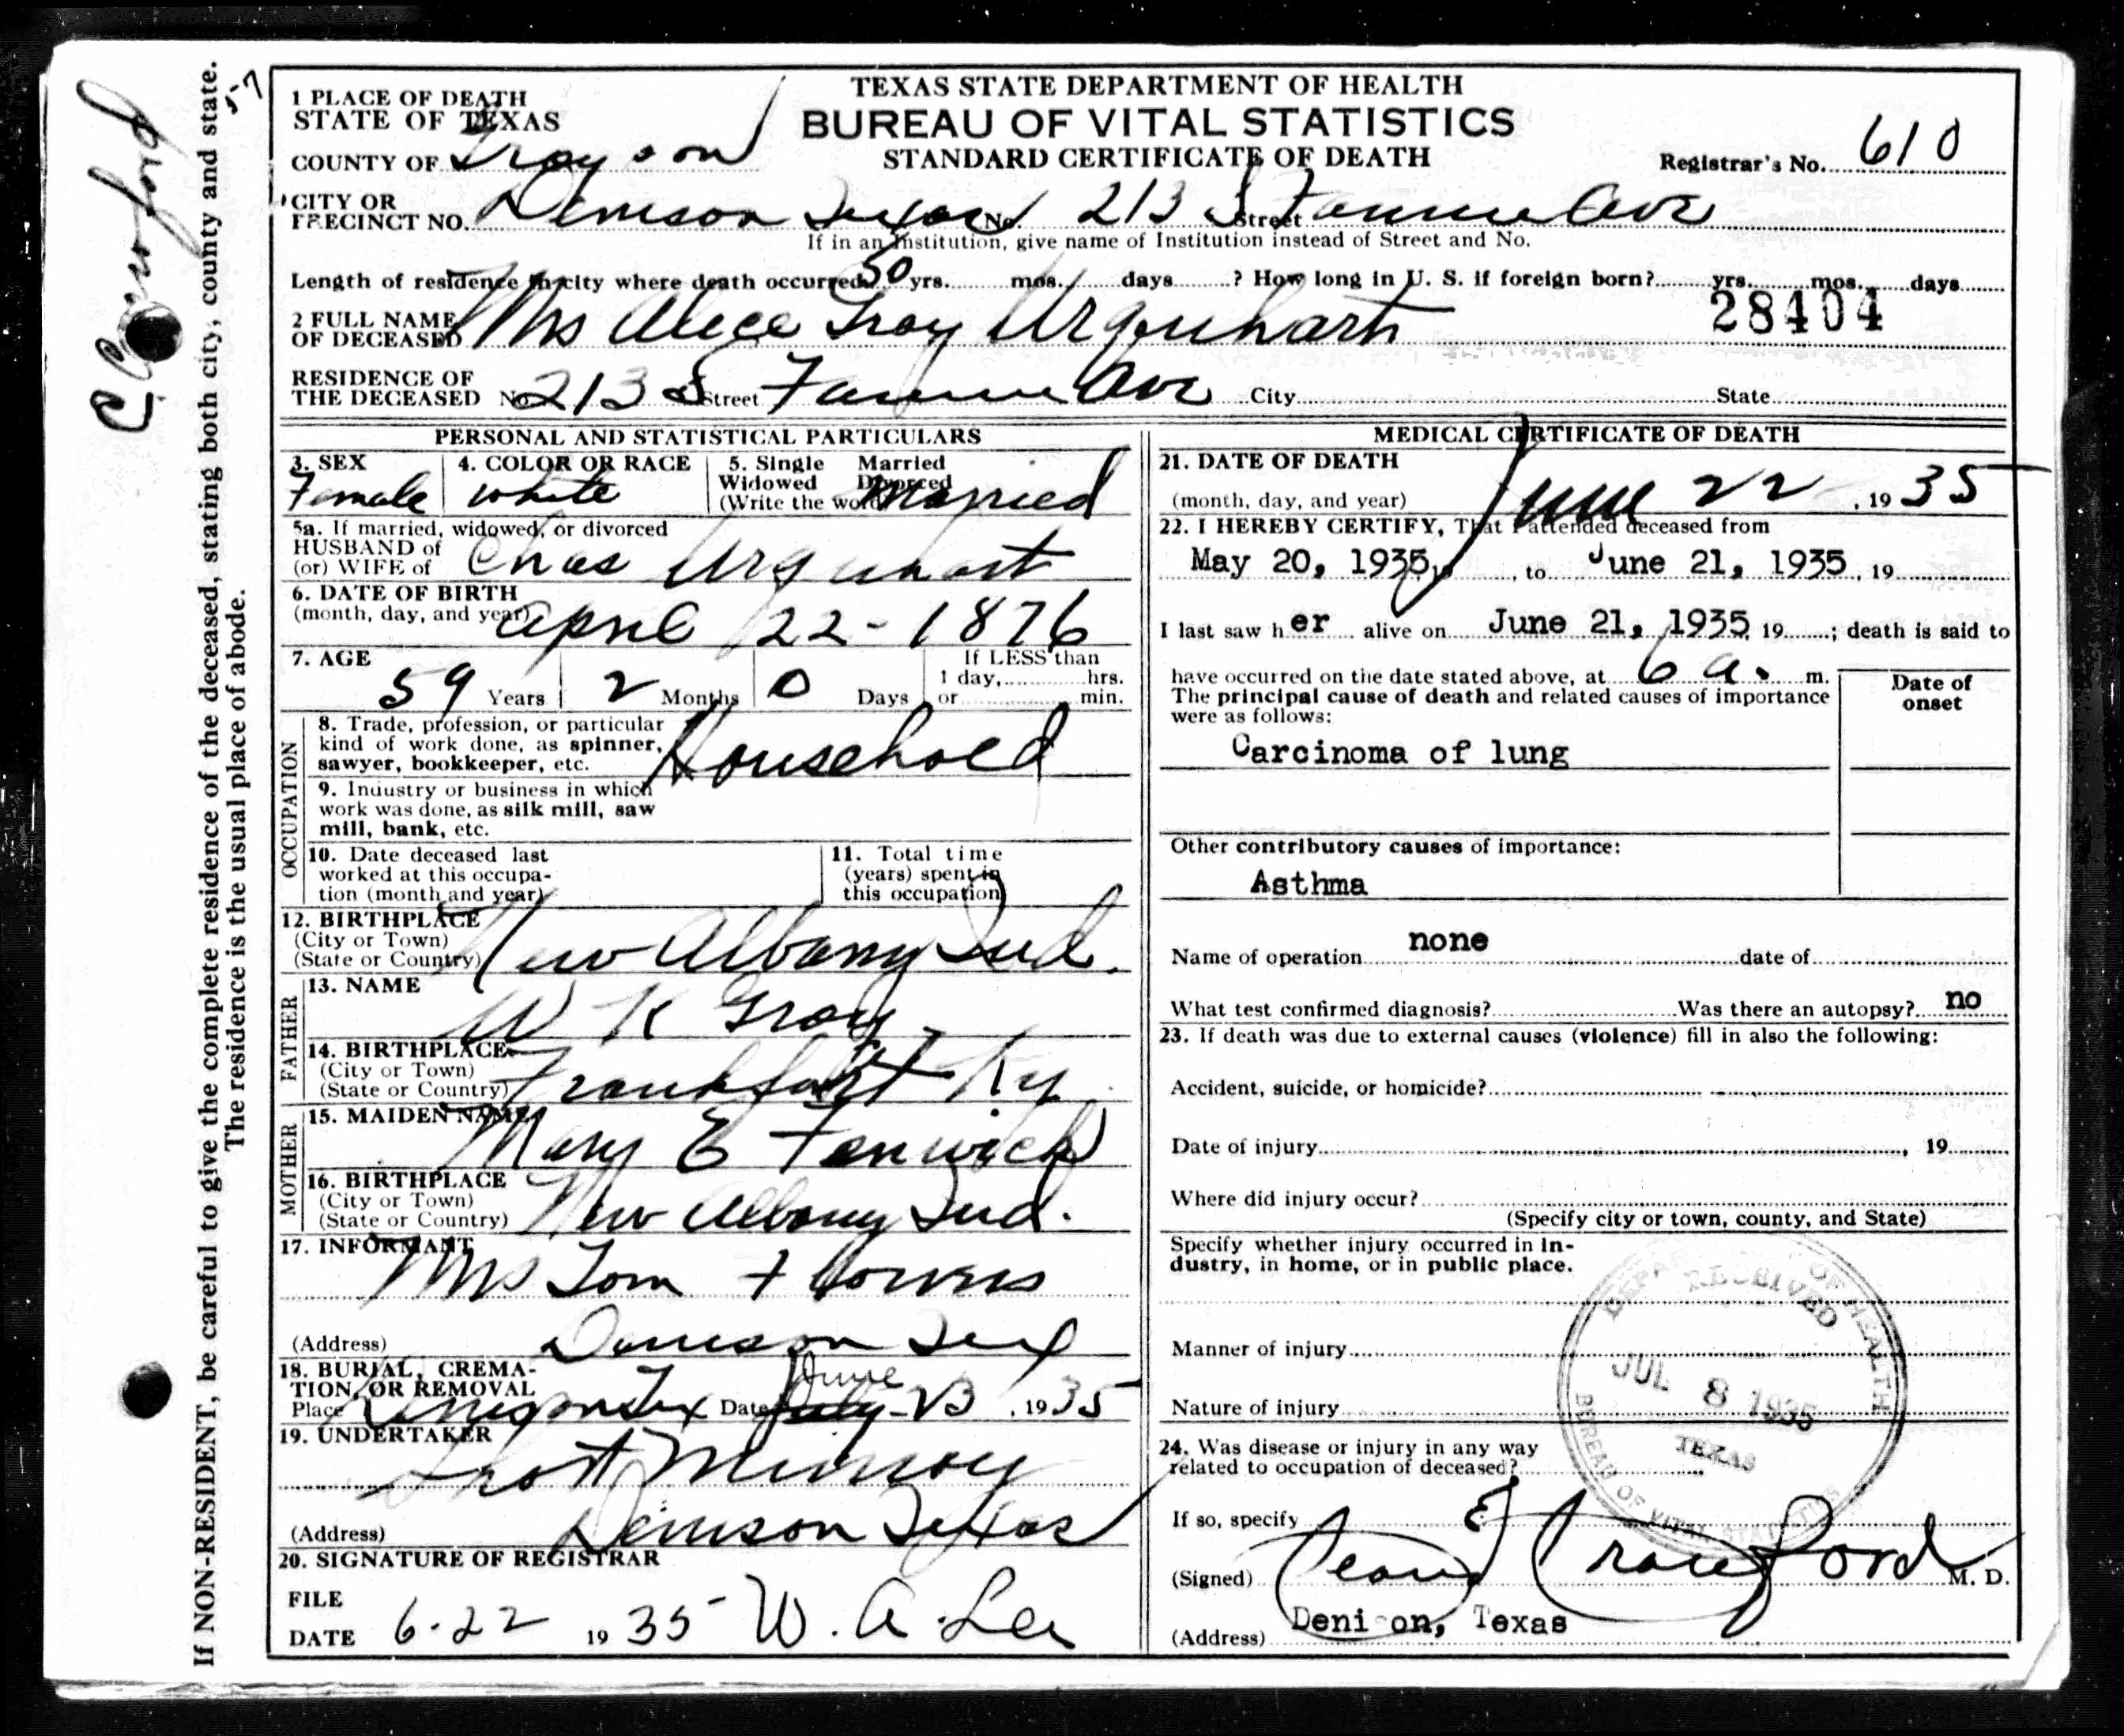 TEXAS STATE DEPARTMENT OF HEALTH
BUREAU OF VITAL STATISTICS
STANDARD CERTIFICATE OF DEATH
1 PLACE OF DEATH
STATE OF TEXAS
COUNTY OF Grayson
Registrar's No. 610
CITY OR PRECINCT NO. Denison Texas No. 213 S Street Fannin Ave
If in an Institution, give name of Institution instead of Street and No.
Length of residence in city where death occurred 50 yrs. mos. days ? How long in U. S. if foreign born? yrs. mos. days
28404
2 FULL NAME OF DECEASED Mrs Alice Gray Urquhart
RESIDENCE OF THE DECEASED No. 213 S Street Fannin Ave City State
PERSONAL AND STATISTICAL PARTICULARS
3. SEX Female
4. COLOR OR RACE white
5. Single Married Widowed Divorced (Write the word) Married
5a. If married, widowed, or divorced
HUSBAND of (or) WIFE of Chas Urquhart
6. DATE OF BIRTH (month, day, and year) April 22-1876
7. AGE 59 Years 2 Months 0 Days If LESS than 1 day, hrs. or min.
OCCUPATION
8. Trade, profession, or particular kind of work done, as spinner, sawyer, bookkeeper, etc. Household
9. Industry or business in which work was done, as silk mill, saw mill, bank, etc.
10. Date deceased last worked at this occupation (month and year)
11. Total time (years) spent in this occupation
12. BIRTHPLACE (City or Town) (State or Country) New Albany Ind.
FATHER
13. NAME W K Gray
14. BIRTHPLACE (City or Town) (State or Country) Frankfort Ky
MOTHER
15. MAIDEN NAME Mary E Fenwick
16. BIRTHPLACE (City or Town) (State or Country) New Albany Ind.
17. INFORMANT Mrs Tom Flowers
(Address) Denison Tex
18. BURIAL, CREMATION, OR REMOVAL
Place Denison Tex Date June July 23, 1935
19. UNDERTAKER
(Address) Denison Texas
20. SIGNATURE OF REGISTRAR
FILE DATE 6-22 1935 W. A. Lee
MEDICAL CERTIFICATE OF DEATH
21. DATE OF DEATH (month, day, and year) June 22, 1935
22. I HEREBY CERTIFY, That I attended deceased from
May 20, 1935, to June 21, 1935, 19
I last saw her alive on June 21, 1935, 19 ; death is said to
have occurred on the date stated above, at 6 a. m.
The principal cause of death and related causes of importance were as follows:
Date of onset
Carcinoma of lung
Other contributory causes of importance:
Asthma
Name of operation none date of
What test confirmed diagnosis? Was there an autopsy? no
23. If death was due to external causes (violence) fill in also the following:
Accident, suicide, or homicide?
Date of injury , 19
Where did injury occur?
(Specify city or town, county, and State)
Specify whether injury occurred in industry, in home, or in public place.
Manner of injury
Nature of injury
24. Was disease or injury in any way related to occupation of deceased?
If so, specify
(Signed) Crawford M. D.
(Address) Deni on, Texas
RECEIVED
JUL 8 1935
TEXAS
OF HEALTH
BUREAU OF VITAL STATISTICS
If NON-RESIDENT, be careful to give the complete residence of the deceased, stating both city, county and state.
The residence is the usual place of abode.
5-7